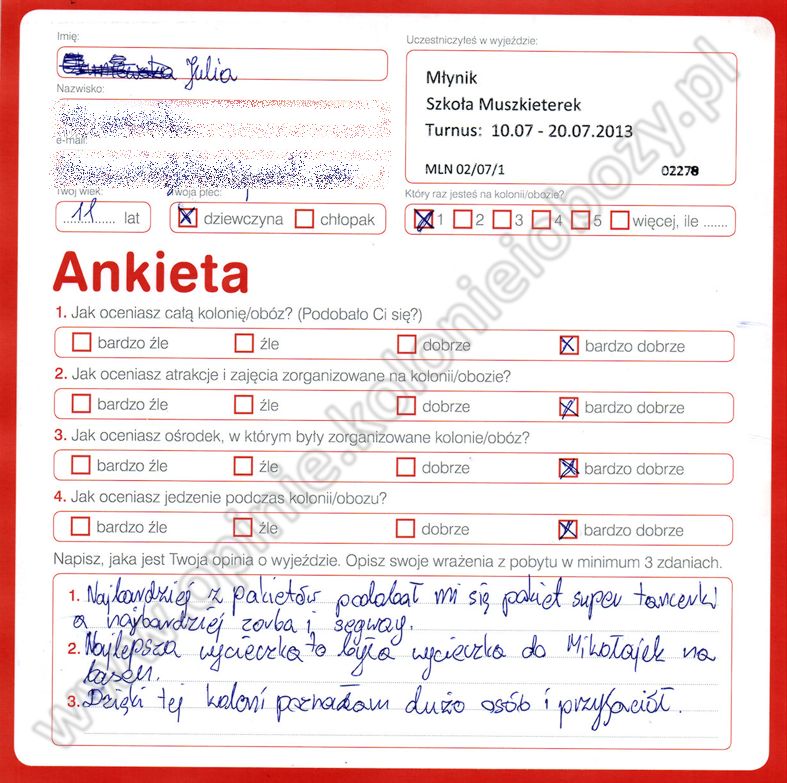 Imię:
Julia
Uczestniczyłeś w wyjeździe:
Młynik
Szkoła Muszkieterek
Turnus: 10.07 - 20.07.2013
MLN 02/07/1 02278
Nazwisko:
e-mail:
Twój wiek:
11 lat
Twoja płeć:
dziewczyna chłopak
Który raz jesteś na kolonii/obozie?
1 2 3 4 5 więcej, ile .......
Ankieta
1. Jak oceniasz całą kolonię/obóz? (Podobało Ci się?)
bardzo źle źle dobrze bardzo dobrze
2. Jak oceniasz atrakcje i zajęcia zorganizowane na kolonii/obozie?
bardzo źle źle dobrze bardzo dobrze
3. Jak oceniasz ośrodek, w którym były zorganizowane kolonie/obóz?
bardzo źle źle dobrze bardzo dobrze
4. Jak oceniasz jedzenie podczas kolonii/obozu?
bardzo źle źle dobrze bardzo dobrze
Napisz, jaka jest Twoja opinia o wyjeździe. Opisz swoje wrażenia z pobytu w minimum 3 zdaniach.
1. Najbardziej z pakietów podobał mi się pakiet super tancerki
a najbardziej zorba i segway.
2. Najlepsza wycieczka to była wycieczka do Mikołajek na
basen.
3. Dzięki tej koloni poznałam dużo osób i przyjaciół.
www.opinie.kolonieiobozy.pl